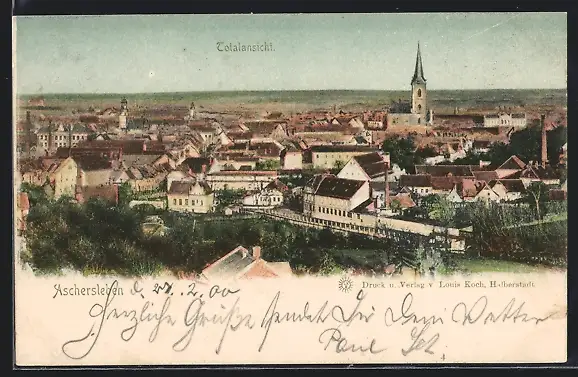 Totalansicht.
Aschersleben d. 27. 2. 00
Druck u. Verlag v Louis Koch, Halberstadt.
Herzliche Grüße sendet Dir Dein Vetter
Paul